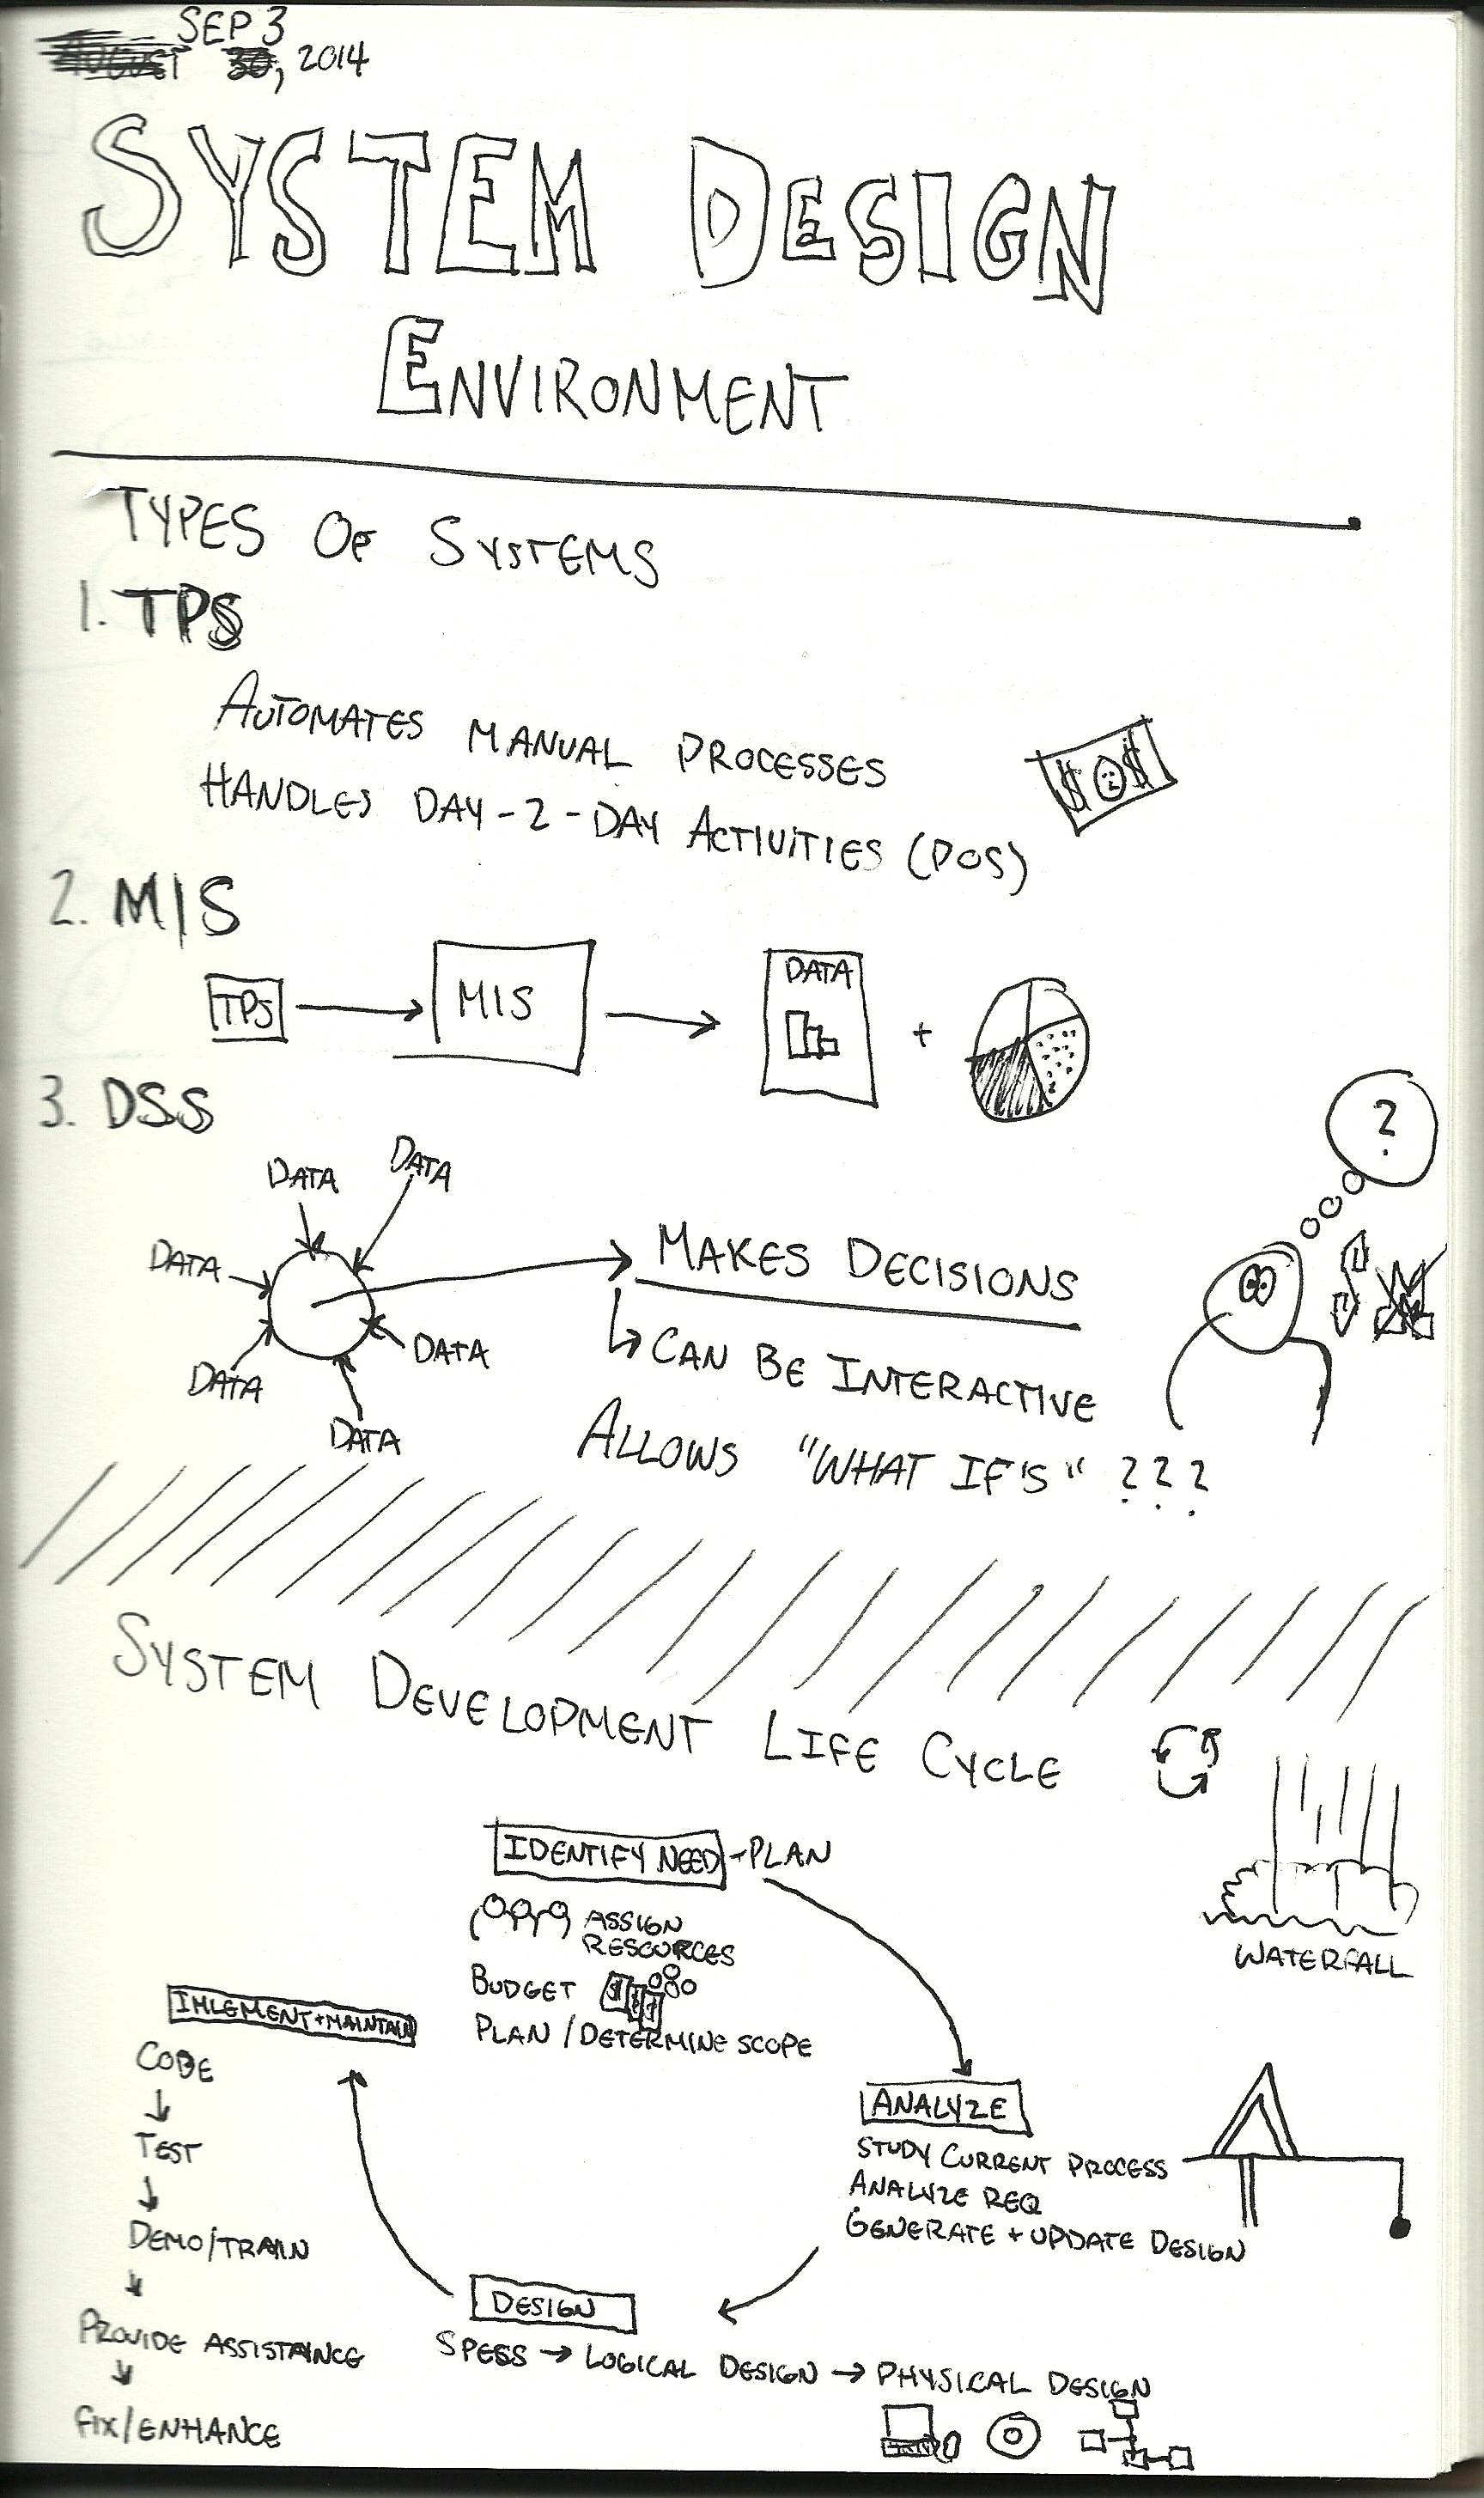 SEP 3
AUGUST 30, 2014
SYSTEM DESIGN
ENVIRONMENT
TYPES OF SYSTEMS
1. TPS
AUTOMATES MANUAL PROCESSES
HANDLES DAY-2-DAY ACTIVITIES (POS)
$ $
2. MIS
TPS
MIS
DATA
+
3. DSS
DATA
DATA
DATA
DATA
DATA
DATA
MAKES DECISIONS
CAN BE INTERACTIVE
ALLOWS "WHAT IF'S" ???
?
SYSTEM DEVELOPMENT LIFE CYCLE
WATERFALL
IDENTIFY NEED -PLAN
ASSIGN
RESOURCES
BUDGET
PLAN / DETERMINE SCOPE
ANALYZE
STUDY CURRENT PROCESS
ANALYZE REQ
GENERATE + UPDATE DESIGN
DESIGN
SPESS → LOGICAL DESIGN → PHYSICAL DESIGN
IMLEMENT + MAINTAIN
CODE
↓
TEST
↓
DEMO/TRAIN
↓
PROVIDE ASSISTAINCE
↓
FIX/ENHANCE